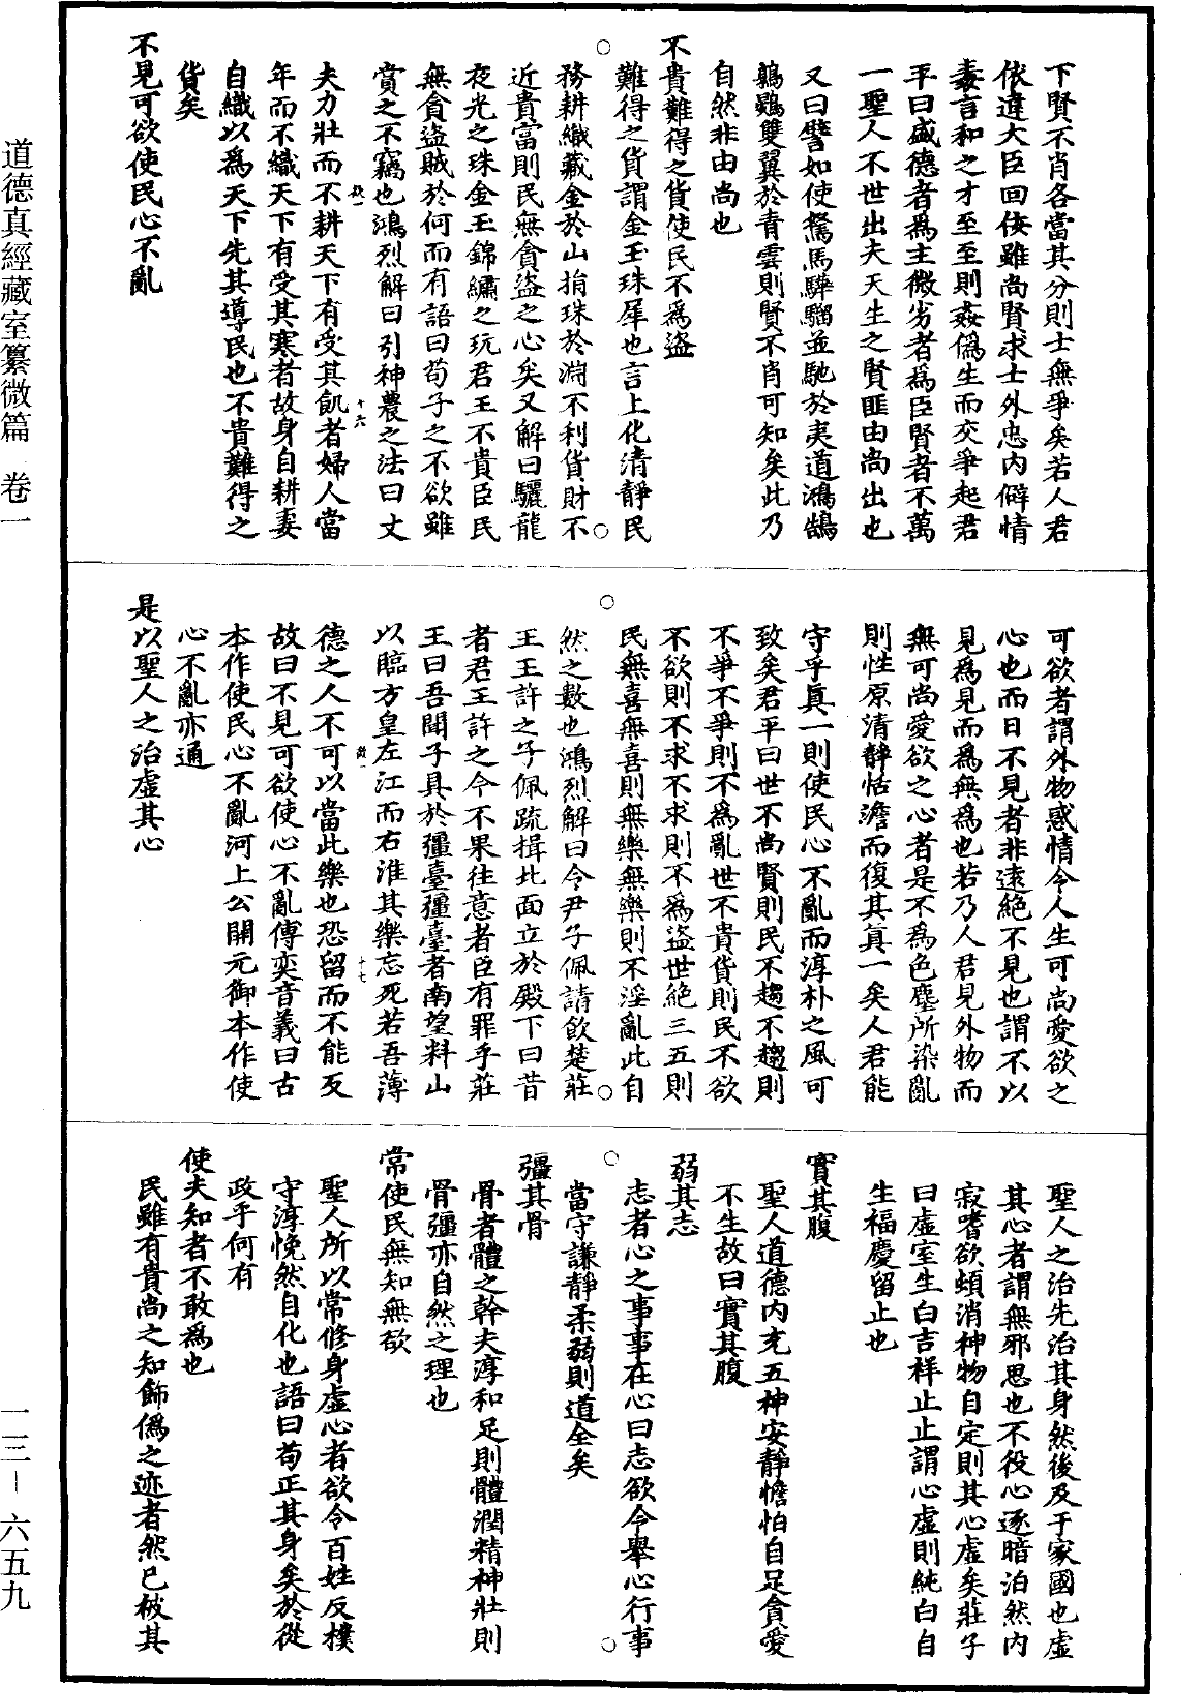 下賢不肖各當其分則士無爭矣若人君
依違大臣回佞雖尚賢求士外忠內僻情
毒言和之才至至則姦偽生而交爭起君
平曰盛德者為主微劣者為臣賢者不萬
一聖人不世出夫天生之賢匪由尚出也
又曰譬如使駑馬驊騮並馳於夷道鴻鵠
鷦鷃雙翼於青雲則賢不肖可知矣此乃
自然非由尚也
不貴難得之貨使民不為盜
難得之貨謂金玉珠犀也言上化清靜民
務耕織藏金於山捐珠於淵不利貨財不
近貴富則民無貪盜之心矣又解曰驪龍
夜光之珠金玉錦繡之玩君王不貴臣民
無貪盜賊於何而有語曰苟子之不欲雖
賞之不竊也鴻烈解曰引神農之法曰丈
夫力壯而不耕天下有受其飢者婦人當
年而不織天下有受其寒者故身自耕妻
自織以為天下先其導民也不貴難得之
貨矣
不見可欲使民心不亂
可欲者謂外物惑情令人生可尚愛欲之
心也而曰不見者非遠絕不見也謂不以
見為見而為無為也若乃人君見外物而
無可尚愛欲之心者是不為色塵所染亂
則性原清靜恬澹而復其真一矣人君能
守乎真一則使民心不亂而淳朴之風可
致矣君平曰世不尚賢則民不趨不趨則
不爭不爭則不為亂世不貴貨則民不欲
不欲則不求不求則不為盜世絕三五則
民無喜無喜則無樂無樂則不淫亂此自
然之數也鴻烈解曰令尹子佩請飲楚莊
王王許之子佩䟽揖北面立於殿下曰昔
者君王許之今不果往意者臣有罪乎莊
王曰吾聞子具於彊臺彊臺者南望料山
以臨方皇左江而右淮其樂忘死若吾薄
德之人不可以當此樂也恐留而不能反
故曰不見可欲使心不亂傅奕音義曰古
本作使民心不亂河上公開元御本作使
心不亂亦通
是以聖人之治虛其心
聖人之治先治其身然後及于家國也虛
其心者謂無邪思也不役心逐暗泊然內
寂嗜欲頓消神物自定則其心虛矣莊子
曰虛室生白吉祥止止謂心虛則純白自
生福慶留止也
實其腹
聖人道德內充五神安靜憺怕自足貪愛
不生故曰實其腹
弱其志
志者心之事事在心曰志欲令舉心行事
當守謙靜柔弱則道全矣
彊其骨
骨者體之幹夫淳和足則體潤精神壯則
骨彊亦自然之理也
常使民無知無欲
聖人所以常修身虛心者欲令百姓反樸
守淳悗然自化也語曰苟正其身矣於從
政乎何有
使夫知者不敢為也
民雖有貴尚之知飾偽之迹者然已被其
道德真經藏室纂微篇 卷一
一三-六五九